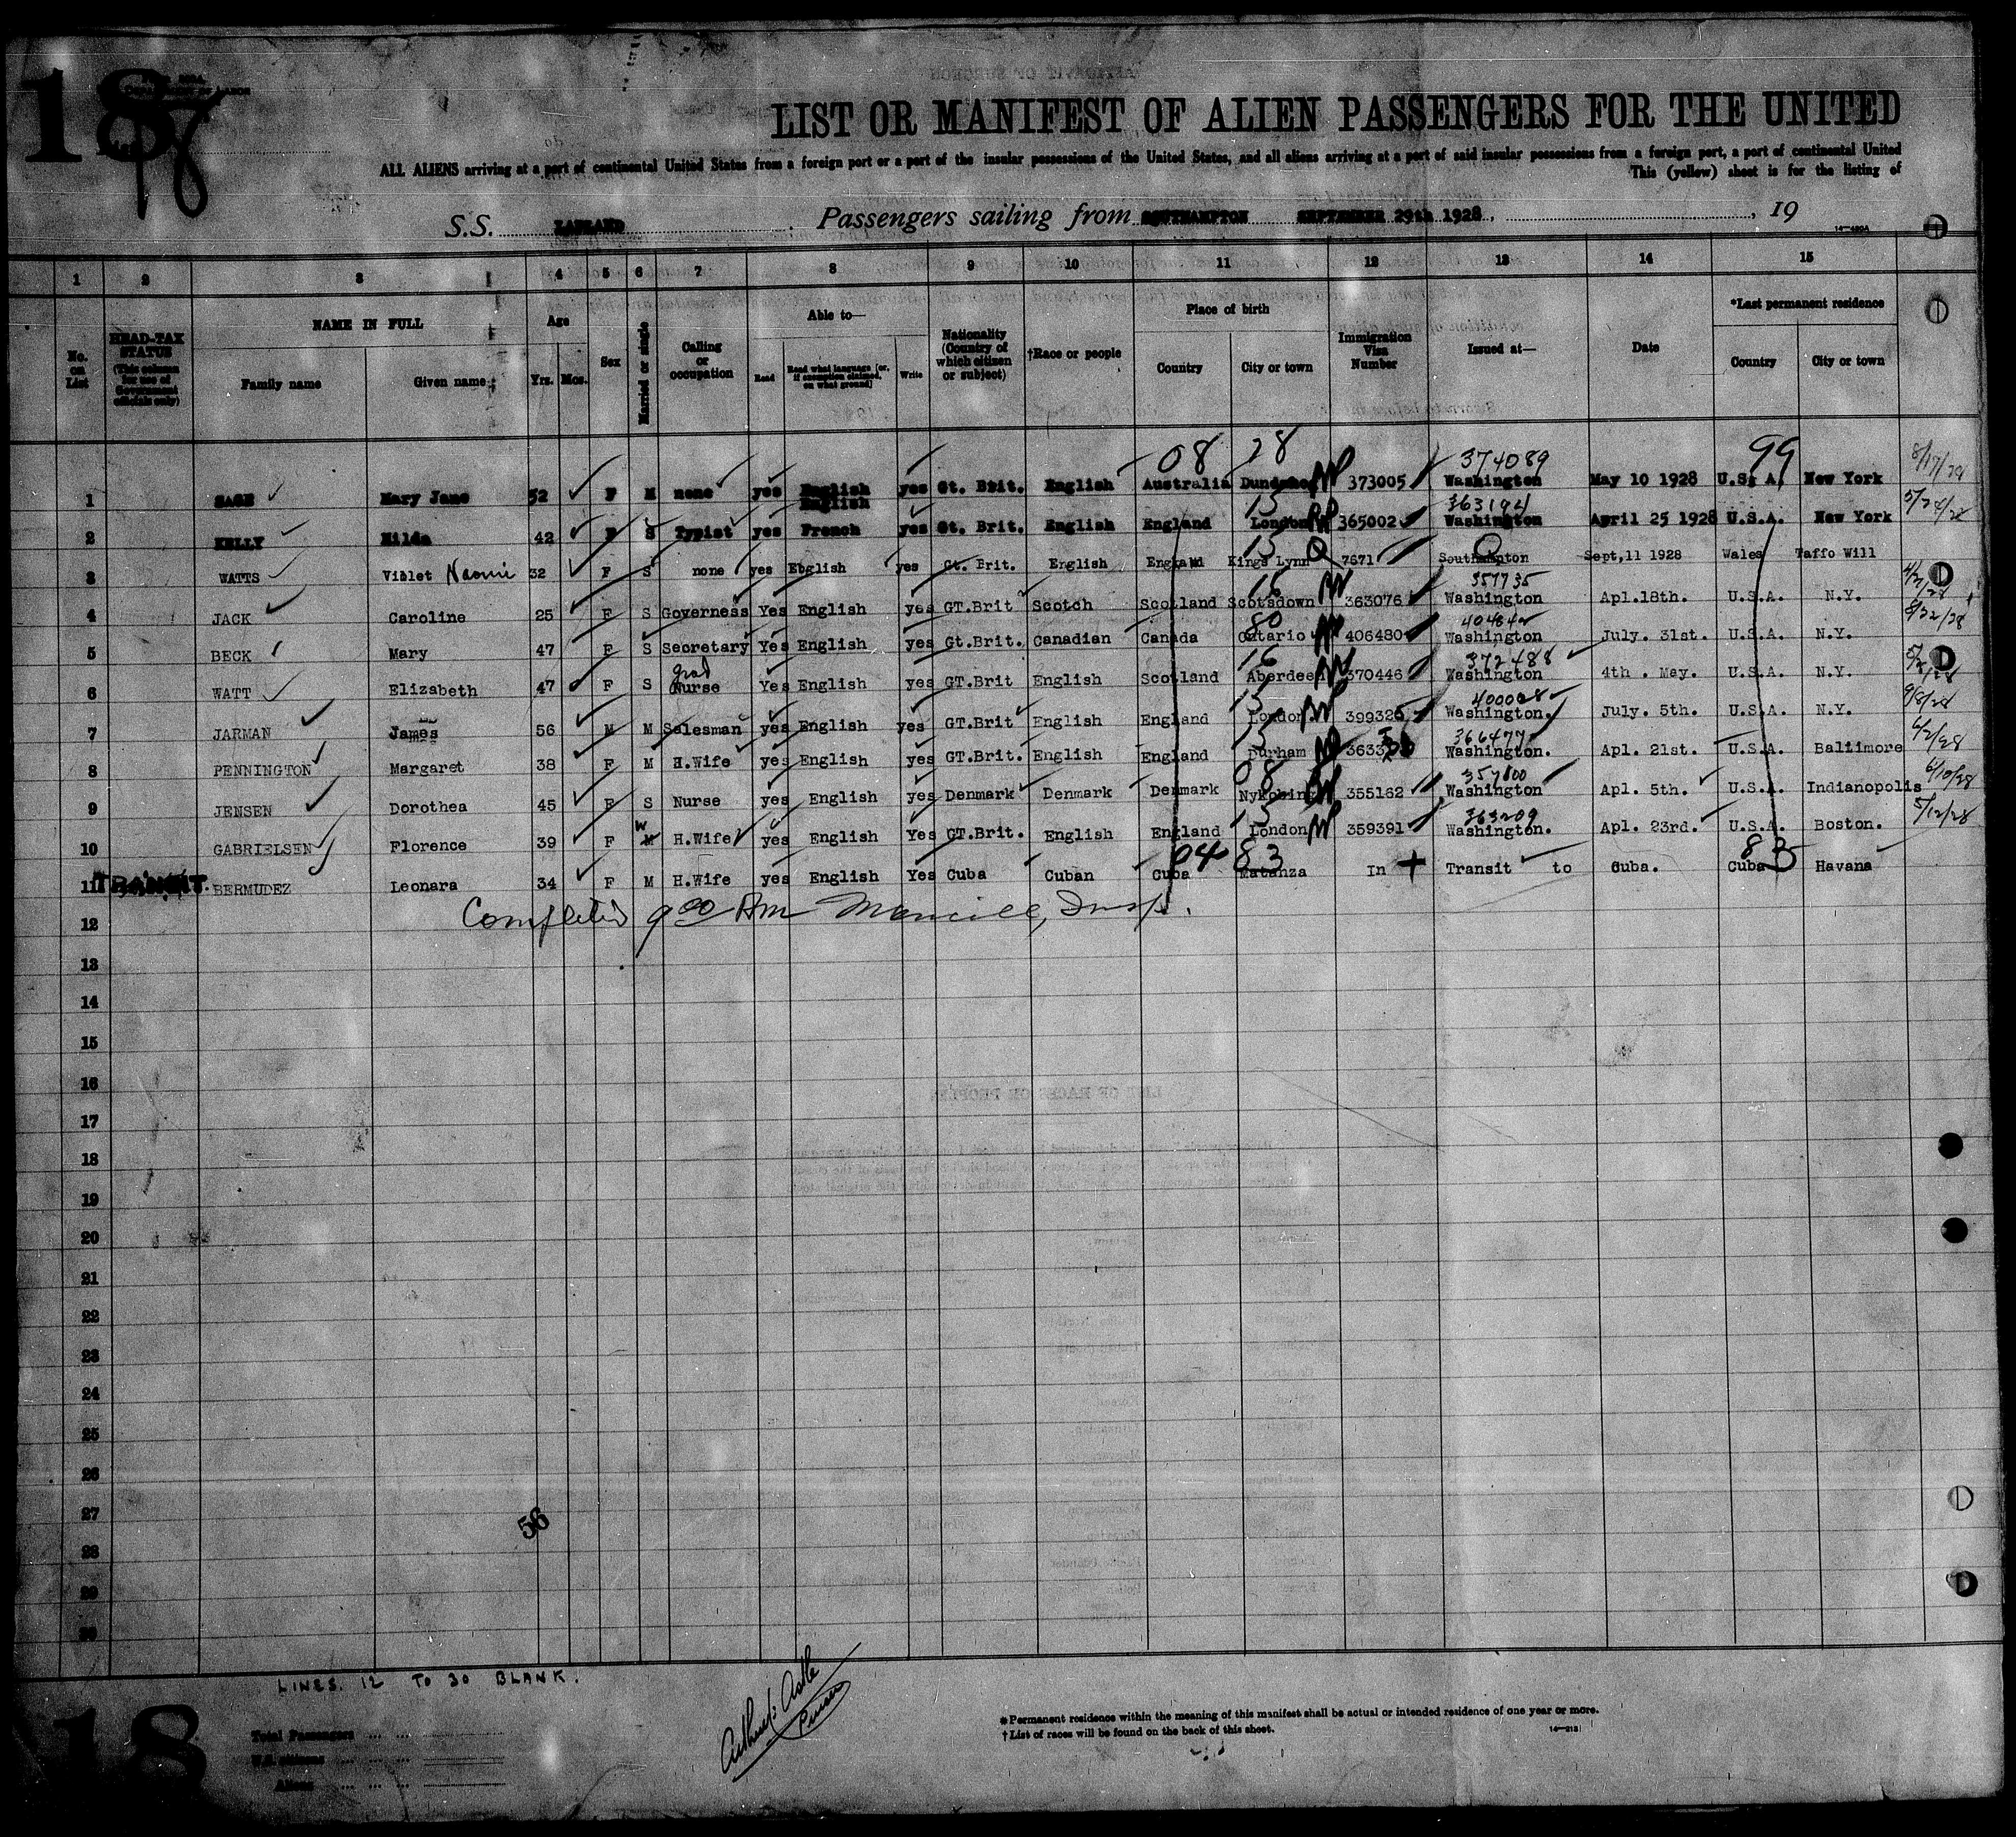 18
LIST OR MANIFEST OF ALIEN PASSENGERS FOR THE UNITED
ALL ALIENS arriving at a port of continental United States from a foreign port or a port of the insular possessions of the United States, and all aliens arriving at a port of said insular possessions from a foreign port, a port of continental United
This (yellow) sheet is for the listing of
S.S. LAPLAND Passengers sailing from SOUTHAMPTON SEPTEMBER 29th 1928, , 19
1 2 3 4 5 6 7 8 9 10 11 12 13 14 15
No. on List
HEAD-TAX STATUS (This column for use of Government officials only)
NAME IN FULL
Family name Given name
Age
Yrs. Mos.
Sex
Married or single
Calling or occupation
Able to—
Read Read what language [or, if exemption claimed, on what ground] Write
Nationality (Country of which citizen or subject)
†Race or people
Place of birth
Country City or town
Immigration Visa Number
Issued at—
Date
*Last permanent residence
Country City or town
08 28 374089 99 8/17/28
1 SAGE Mary Jane 52 F M none yes English yes Gt. Brit. English Australia 373005 Washington May 10 1928 U.S.A. New York
English 15 363194
2 KELLY Hilda 42 F S Typist yes French yes Gt. Brit. English England London 365002 Washington April 25 1928 U.S.A. New York
15
3 WATTS Violet Naomi 32 F S none yes English yes Gt. Brit. English England Kings Lynn 7671 Southampton Sept,11 1928 Wales Taffo Will
16 357735
4 JACK Caroline 25 F S Governess Yes English yes GT.Brit Scotch Scotland Scotsdown 363076 Washington Apl.18th. U.S.A. N.Y.
80 8/22/28
5 BECK Mary 47 F S Secretary Yes English yes Gt.Brit. Canadian Canada Ontario 406480 Washington July. 31st. U.S.A. N.Y.
grad 16 372488
6 WATT Elizabeth 47 F S Nurse Yes English yes GT.Brit English Scotland Aberdeen 370446 Washington 4th . May. U.S.A. N.Y.
15 400028
7 JARMAN James 56 M M Salesman yes English yes GT.Brit English England London. 399325 Washington. July. 5th. U.S.A. N.Y.
15 366477 6/2/28
8 PENNINGTON Margaret 38 F M H.Wife yes English yes GT.Brit. English England Durham Washington. Apl. 21st. U.S.A. Baltimore
08 357800 6/10/28
9 JENSEN Dorothea 45 F S Nurse yes English yes Denmark Denmark Denmark Nykobing 355162 Washington Apl. 5th. U.S.A. Indianopolis
W 15 363209 5/12/28
10 GABRIELSEN Florence 39 F M H.Wife yes English Yes GT.Brit. English England London 359391 Washington. Apl. 23rd. U.S.A. Boston.
04 83 83
11 TRANSIT. BERMUDEZ Leonara 34 F M H.Wife yes English Yes Cuba Cuban Cuba Matanza In Transit to Cuba. Cuba Havana
Completed 9 00 Am Insp.
12
13
14
15
16
17
18
19
20
21
22
23
24
25
26
27
56
28
29
30
LINES. 12 TO 30 BLANK.
18
Total Passengers ... ...
U.S. citizens ... ...
Aliens ... ... ...
Purser
*Permanent residence within the meaning of this manifest shall be actual or intended residence of one year or more.
†List of races will be found on the back of this sheet.